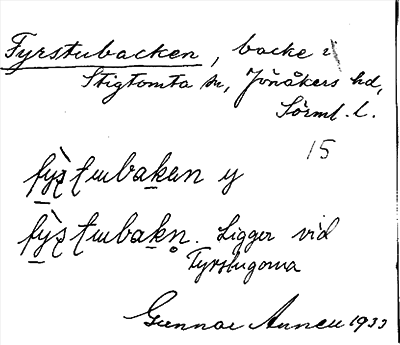 Fyrstubacken, backe i
Stigtomta sn, Jönåkers hd,
Sörml. l.
15
fỳʂʈɯbakan y
fỳʂʈɯbakn̥. Ligger vid
Fyrstugorna
Gunnar 1933